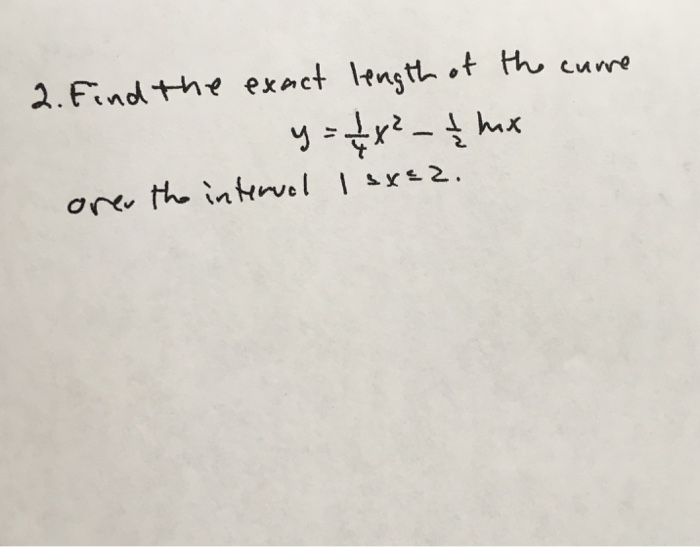 2. Find the exact length of the curve
y = 1/4 x² - 1/2 ln x
over the interval 1 ≤ x ≤ 2.